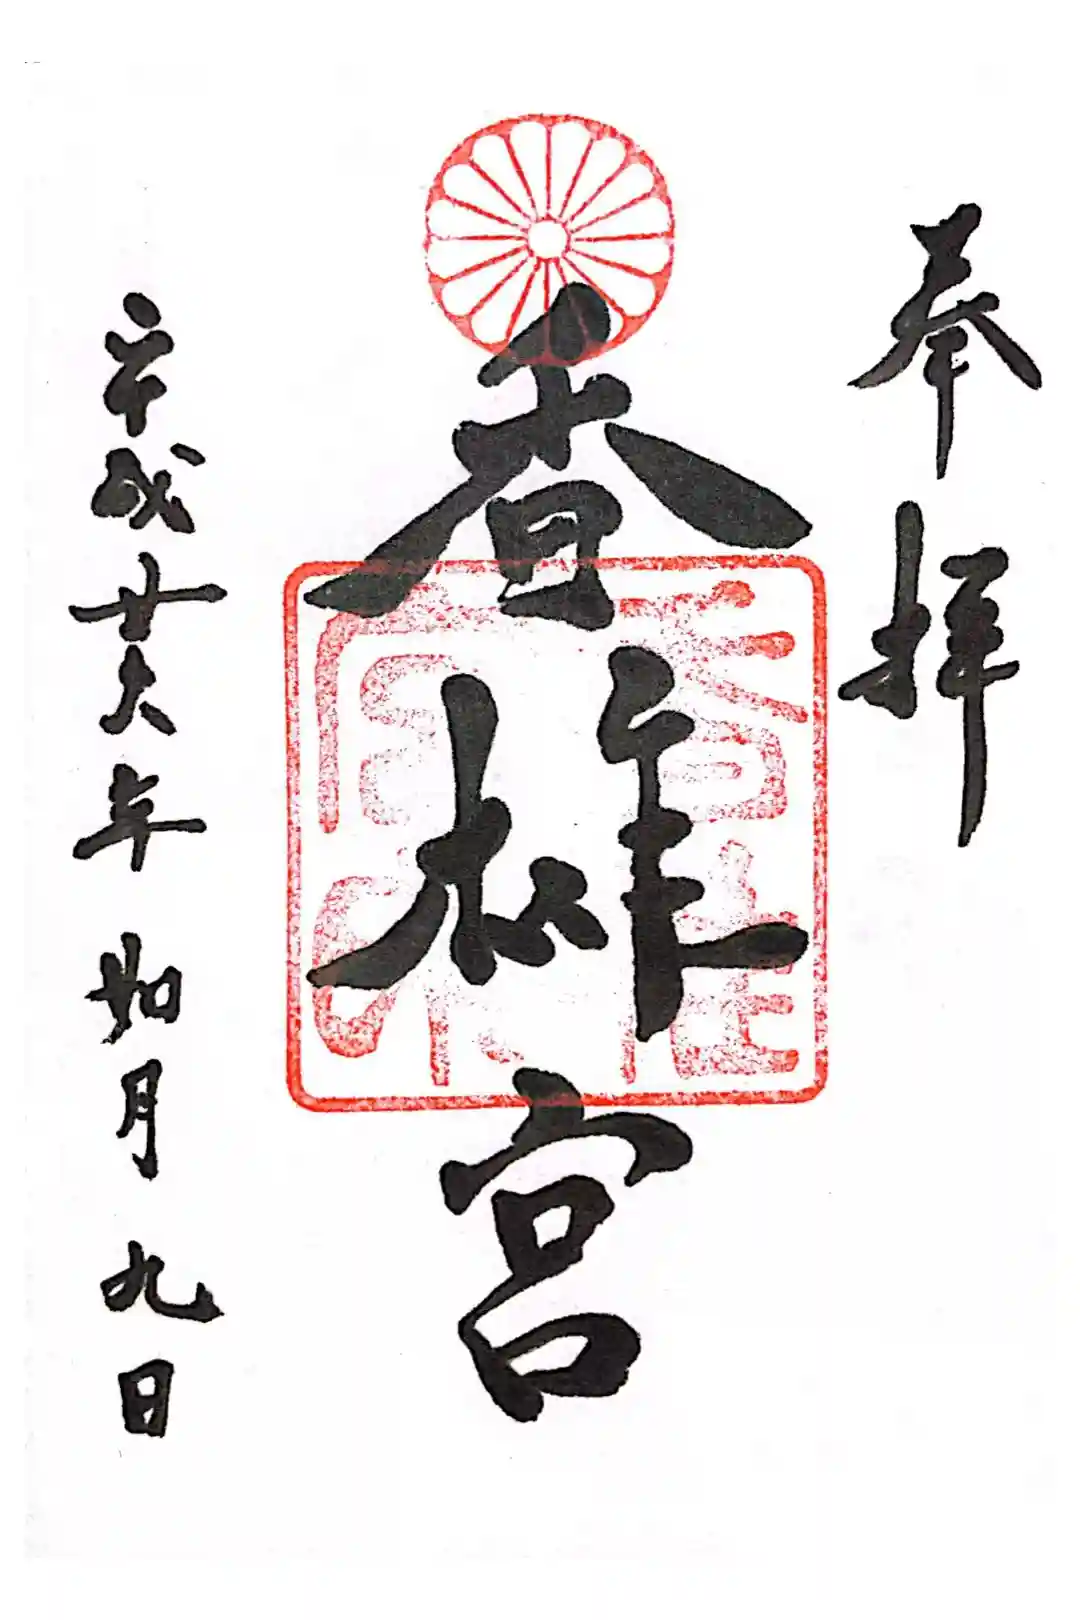 奉拝
香椎宮
香椎
宮印
平成廿六年 如月 九日